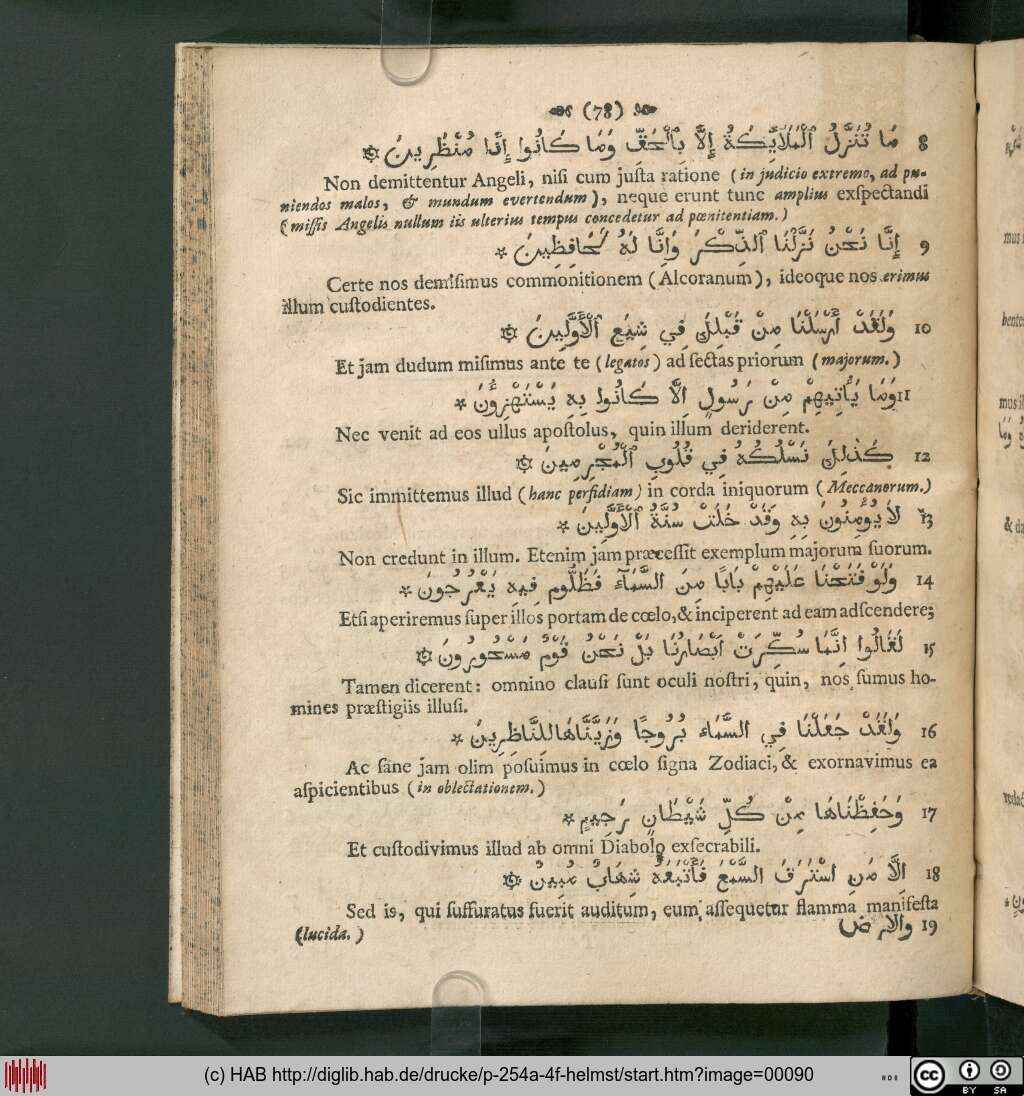 (78)
8 مَا تُنَزَّلُ ٱلْمَلَايِٕكَةُ إِلَّا بِٱلْحَقِّ وَمَا كَانُوا إِذًا مُنْظَرِينَ ۞
Non demittentur Angeli, niſi cum juſta ratione (in judicio extremo, ad pu-
niendos malos, & mundum evertendum), neque erunt tunc amplius exſpectandi
(miſſis Angelis nullum iis ulterius tempus concedetur ad pœnitentiam.)
9 إِنَّا نَحْنُ نَزَّلْنَا ٱلذِّكْرَ وَإِنَّا لَهُ لَحَافِظِينَ *
Certe nos demiſimus commonitionem (Alcoranum), ideoque nos erimus
illum cuſtodientes.
10 وَلَقَدْ أَرْسَلْنَا مِنْ قَبْلِكَ فِي شِيَعِ ٱلْأَوَّلِينَ ۞
Et jam dudum miſimus ante te (legatos) ad ſectas priorum (majorum.)
11 وَمَا يَأْتِيهِمْ مِنْ رَسُولٍ اِلَّا كَانُوا بِهِ يَسْتَهْزِؤُنَ *
Nec venit ad eos ullus apoſtolus, quin illum deriderent.
12 كَذٰلِكَ نَسْلُكُهُ فِي قُلُوبِ ٱلْمُجْرِمِينَ ۞
Sic immittemus illud (hanc perfidiam) in corda iniquorum (Meccanorum.)
13 لَا يُؤْمِنُونَ بِهِ وَقَدْ خَلَتْ سُنَّةُ ٱلْأَوَّلِينَ *
Non credunt in illum. Etenim jam præceſſit exemplum majorum ſuorum.
14 وَلَوْ فَتَحْنَا عَلَيْهِمْ بَابًا مِنَ السَّمَآءِ فَظَلُّوم فِيهِ يَعْرُجُونَ *
Etſi aperiremus ſuper illos portam de cœlo, & inciperent ad eam adſcendere;
15 لَقَالُوا اِنَّمَا سُكِّرَتْ اَبْصَارُنَا بَلْ نَحْنُ قَوْمٌ مَسْحُورُونَ ۞
Tamen dicerent: omnino clauſi ſunt oculi noſtri, quin, nos ſumus ho-
mines præſtigiis illuſi.
16 وَلَقَدْ جَعَلْنَا فِي السَّمَاء بُرُوجًا وَزَيَّنَّاهَا لِلنَّاظِرِينَ *
Ac ſane jam olim poſuimus in cœlo ſigna Zodiaci, & exornavimus ea
aſpicientibus (in oblectationem.)
17 وَحَفِظْنَاهَا مِنْ كُلِّ شَيْطَانٍ رَجِيمٍ *
Et cuſtodivimus illud ab omni Diabolo exſecrabili.
18 اِلَّا مَنِ اسْتَرَقَ السَّمْعَ فَأَتْبَعَهُ شِهَابٌ مُبِينٌ ۞
Sed is, qui ſuffuratus fuerit auditum, eum aſſequetur flamma manifeſta
(lucida.)
19 والارض
(c) HAB http://diglib.hab.de/drucke/p-254a-4f-helmst/start.htm?image=00090
cc BY SA